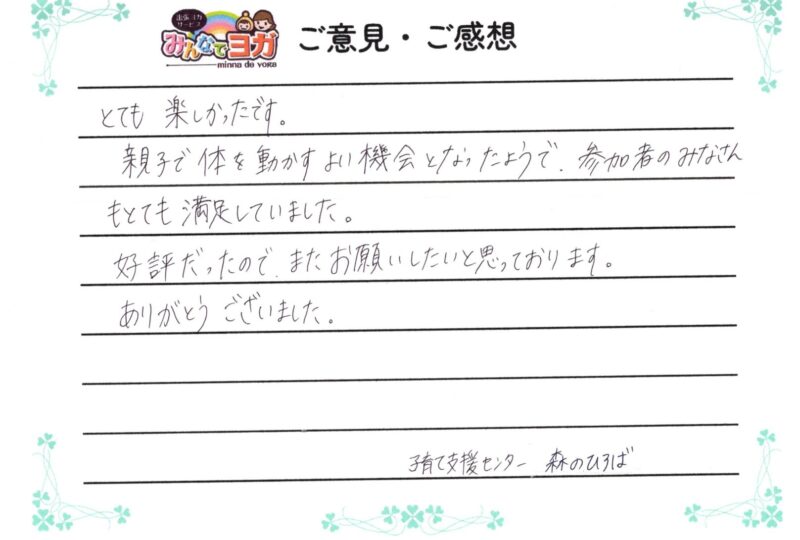 出張ヨガ
サービス
みんなでヨガ
minna de YOGA
ご意見・ご感想
とても 楽しかったです。
親子で体を動かすよい機会となったようで、参加者のみなさん
もとても満足していました。
好評だったので、またお願いしたいと思っております。
ありがとうございました。
子育て支援センター 森のひろば